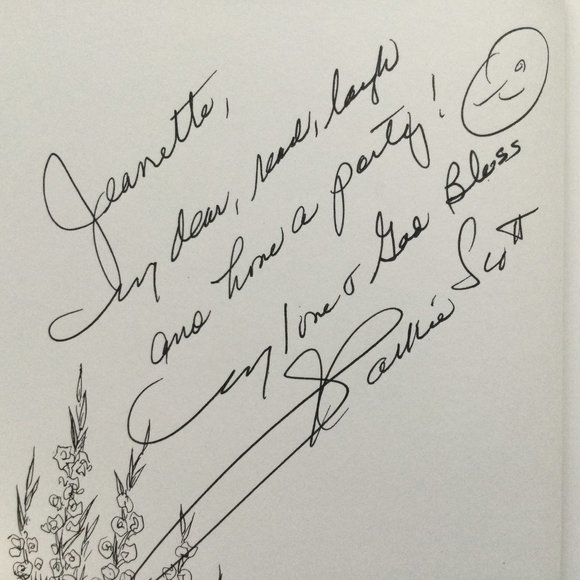 Jeanette,
my dear, read, laugh
and have a party!
my love & God Bless
Scott